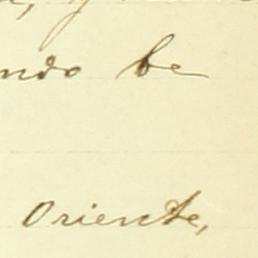 ndo be
Oriente,